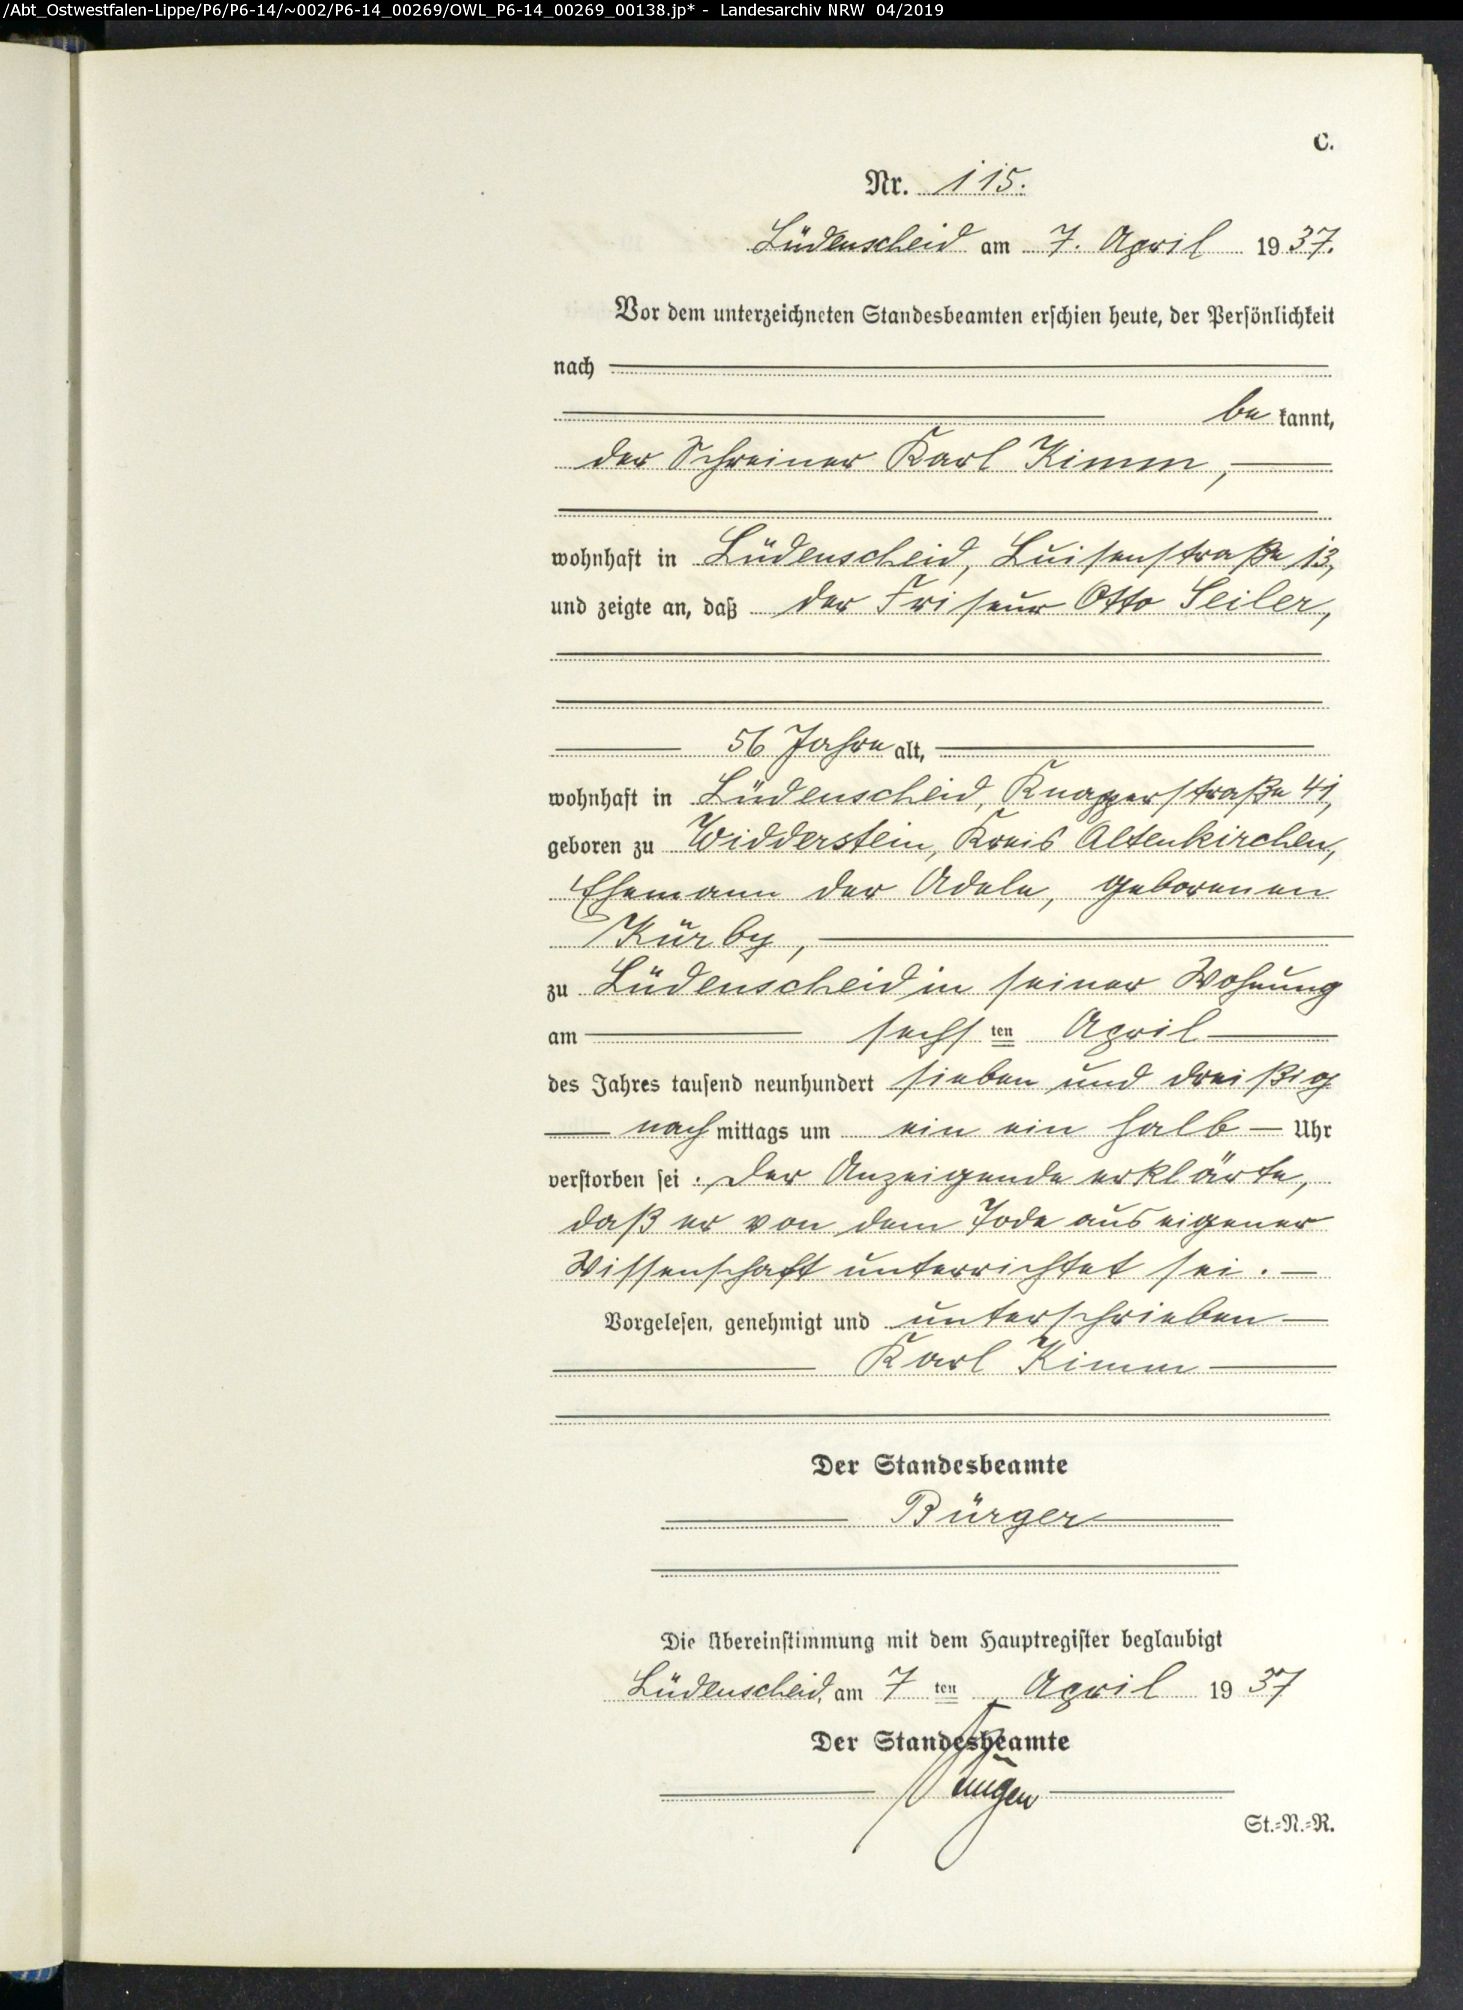 /Abt_Ostwestfalen-Lippe/P6/P6-14/~002/P6-14_00269/OWL_P6-14_00269_00138.jp* - Landesarchiv NRW 04/2019
C.
Nr. 115.
Lüdenscheid am 7. April 1937.
Vor dem unterzeichneten Standesbeamten erschien heute, der Persönlichkeit
nach
be kannt,
der Schreiner Karl Kimm,
wohnhaft in Lüdenscheid, Luisenstraße 13,
und zeigte an, daß der Friseur Otto Seiler,
56 Jahre alt,
wohnhaft in Lüdenscheid, Knapperstraße 41,
geboren zu Widderstein, Kreis Altenkirchen,
Ehemann der Adele, geborenen
Kürby,
zu Lüdenscheid in seiner Wohnung
am sechs ten April
des Jahres tausend neunhundert sieben und dreißig
nach mittags um ein ein halb Uhr
verstorben sei. Der Anzeigende erklärte,
daß er von dem Tode aus eigener
Wissenschaft unterrichtet sei.
Vorgelesen, genehmigt und unterschrieben
Karl Kimm
Der Standesbeamte
Bürger
Die Übereinstimmung mit dem Hauptregister beglaubigt
Lüdenscheid, am 7 ten April 1937
Der Standesbeamte
St.=N.=R.